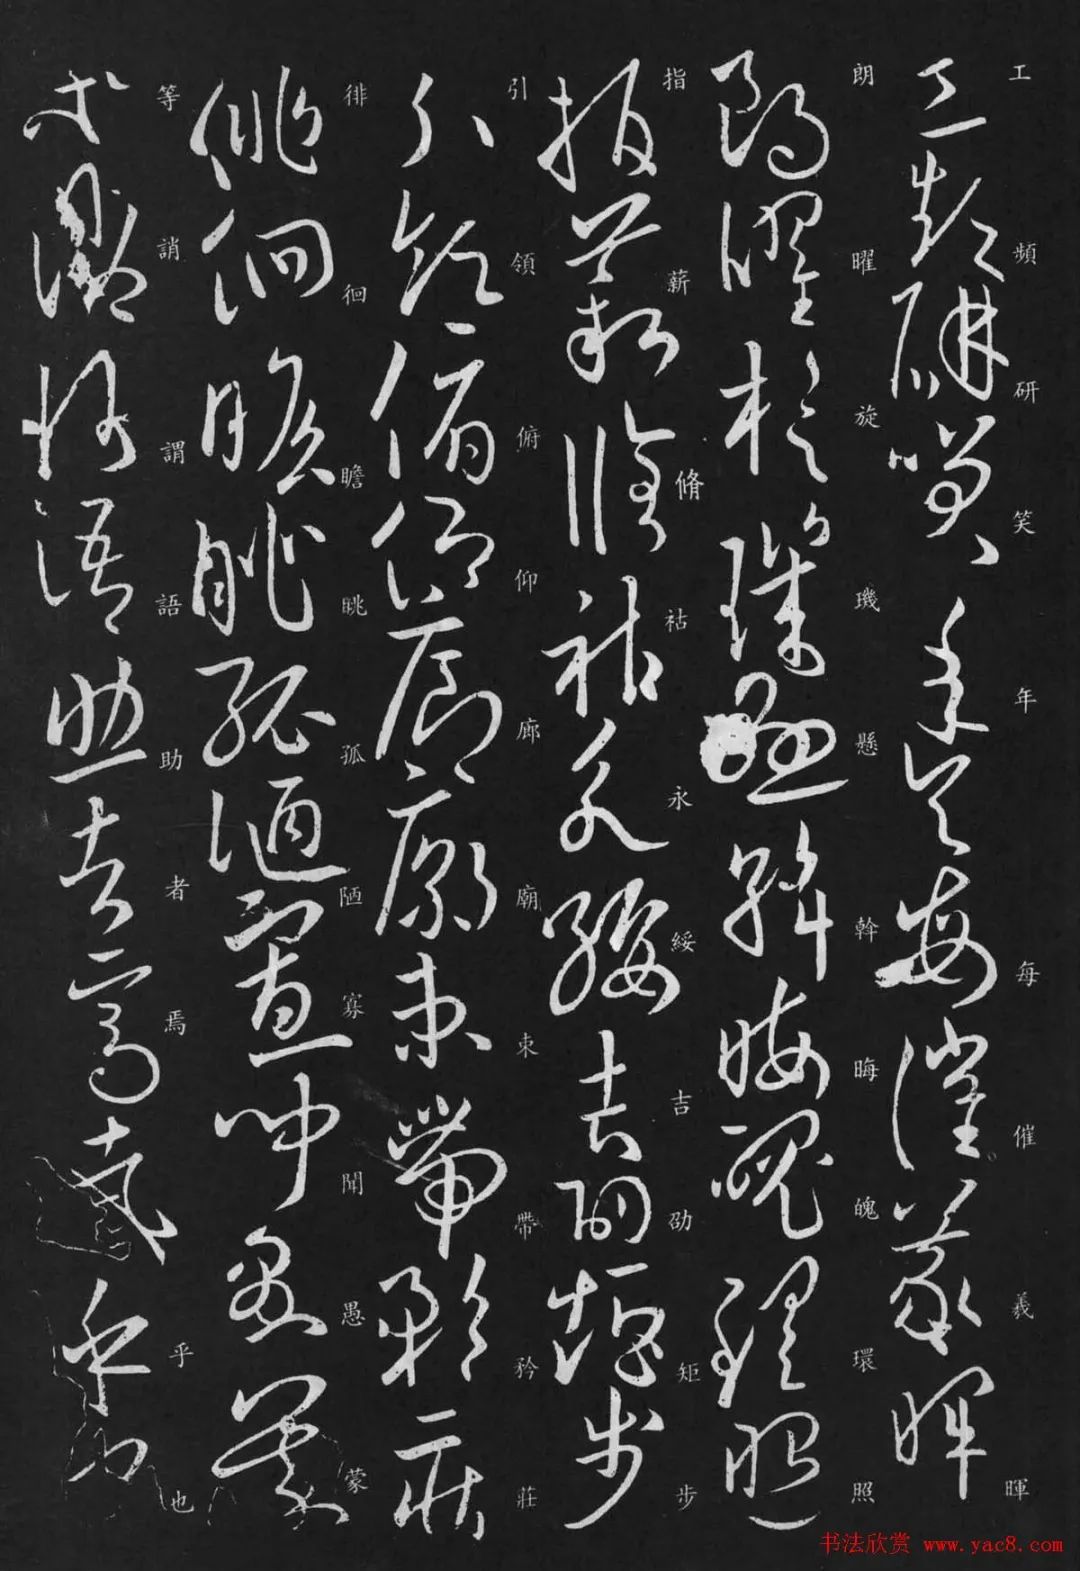 工頻研笑年矢每催羲暉
朗曜旋璣懸斡晦魄環照
指薪脩祜永綏吉劭矩步
引領俯仰廊廟束帶矜莊
徘徊瞻眺孤陋寡聞愚蒙
等誚謂語助者焉哉乎也
书法欣赏 www.yac8.com